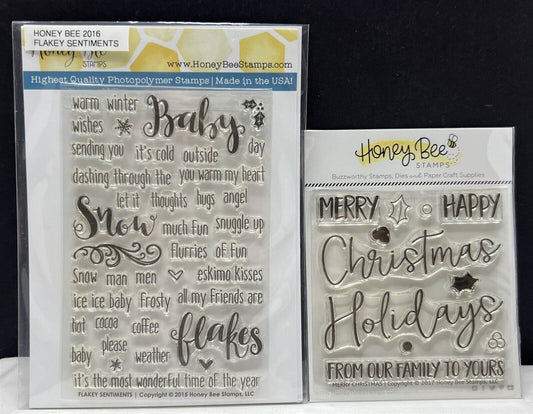 HONEY BEE 2016
FLAKEY SENTIMENTS
Honey Bee
STAMPS
www.HoneyBeeStamps.com
Highest Quality Photopolymer Stamps | Made in the USA!
warm winter
wishes
Baby
day
sending you it's cold outside
dashing through the you warm my heart
let it thoughts hugs angel
Snow
much fun snuggle up
flurries of fun
Snow man men
eskimo kisses
ice ice baby Frosty all my friends are
hot cocoa coffee
flakes
baby please weather
it's the most wonderful time of the year
FLAKEY SENTIMENTS | Copyright © 2015 Honey Bee Stamps, LLC
Honey Bee
STAMPS
Buzzworthy Stamps, Dies and Paper Craft Supplies
MERRY HAPPY
Christmas
Holidays
FROM OUR FAMILY TO YOURS
MERRY CHRISTMAS | Copyright © 2017 Honey Bee Stamps, LLC